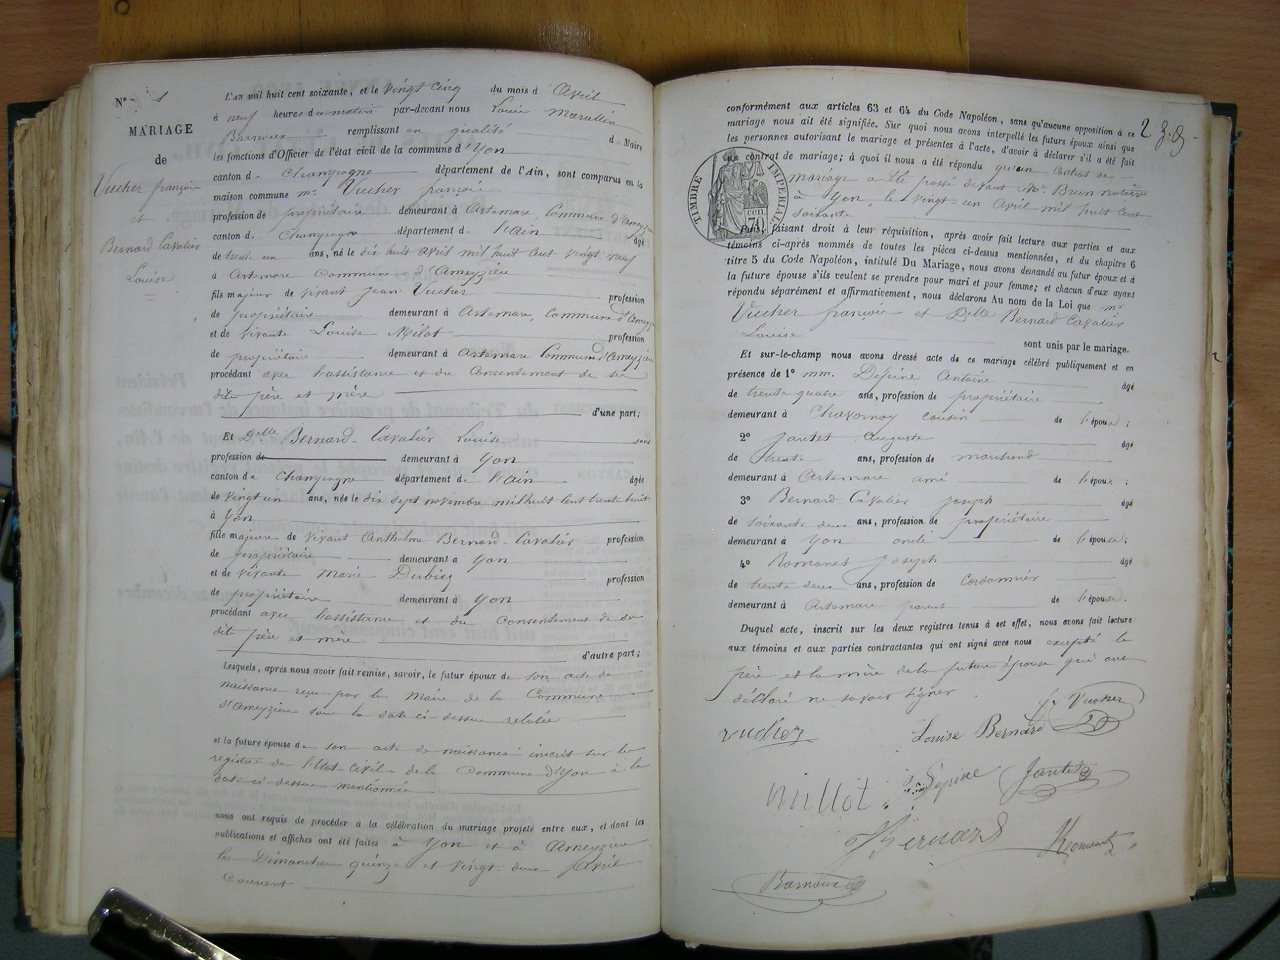 N° 1
MARIAGE
de
Vucher françois
et
Bernard Cavalier
Louise
L'an mil huit cent soixante, et le vingt cinq du mois d avril
à neuf heures du matin par-devant nous Louis Marcellin
remplissant en qualité d Maire
les fonctions d'Officier de l'état civil de la commune d'Yon
canton d Champagne département de l'Ain, sont comparus en la
maison commune mr Vucher françois
profession de propriétaire demeurant à Artemare, Commune d'Ameyzieu
canton d Champagne département d l'ain âgé
de trente un ans, né le dix huit avril mil huit cent vingt neuf
à Artemare Commune d'Ameyzieu
fils majeur de vivant Jean Vucher profession
de propriétaire demeurant à Artemare, Commune d'Ameyzieu
et de vivante Louise Millot profession
de propriétaire demeurant à Artemare Commune d'Ameyzieu
procédant avec l'assistance et du Consentement de ses
dits père et mère
d'une part;
Et Delle Bernard-Cavalier Louise sans
profession de demeurant à Yon
canton de Champagne département de l'ain âgée
de vingt un ans, née le dix sept novembre mil huit cent trente huit
à Yon
fille majeure de vivant Anthelme Bernard-Cavalier profession
de propriétaire demeurant à Yon
et de vivante Marie profession
de propriétaire demeurant à Yon
procédant avec l'assistance et du Consentement de ses
dits père et mère
d'autre part;
Lesquels, après nous avoir fait remise, savoir, le futur époux de son acte de
naissance reçu par le Maire de la Commune
d'Ameyzieu sous la date ci-dessus relatée
et la future épouse de son acte de naissance inscrit sur les
registres de l'Etat-Civil de la Commune d'Yon à la
date ci-dessus mentionnée
nous ont requis de procéder à la célébration du mariage projeté entre eux, et dont les
publications et affiches ont été faites à Yon et à Ameyzieu
les Dimanches quinze et vingt deux avril
courant
conformément aux articles 63 et 64 du Code Napoléon, sans qu'aucune opposition à ce
mariage nous ait été signifiée. Sur quoi nous avons interpellé les futurs époux ainsi que
les personnes autorisant le mariage et présentes à l'acte, d'avoir à déclarer s'il a été fait
un contrat de mariage; à quoi il nous a été répondu qu'un Contrat de
mariage a été passé devant Me Brun notaire
à Yon, le vingt un avril mil huit cent
soixante
TIMBRE IMPERIAL
70 cen.
Puis, faisant droit à leur réquisition, après avoir fait lecture aux parties et aux
témoins ci-après nommés de toutes les pièces ci-dessus mentionnées, et du chapitre 6
titre 5 du Code Napoléon, intitulé Du Mariage, nous avons demandé au futur époux et à
la future épouse s'ils veulent se prendre pour mari et pour femme; et chacun d'eux ayant
répondu séparément et affirmativement, nous déclarons Au nom de la Loi que mr
Vucher françois et Delle Bernard Cavalier
Louise sont unis par le mariage.
Et sur-le-champ nous avons dressé acte de ce mariage célébré publiquement et en
présence de 1° mm. Antoine âgé
de trente quatre ans, profession de propriétaire
demeurant à Chavornay cousin de l'épouse;
2° Jantet Auguste âgé
de trente ans, profession de marchand
demeurant à Artemare ami de l'époux;
3° Bernard Cavalier Joseph âgé
de soixante deux ans, profession de propriétaire
demeurant à Yon oncle de l'épouse;
4° Romanet Joseph âgé
de trente deux ans, profession de Cordonnier
demeurant à Artemare parent de l'épouse.
Duquel acte, inscrit sur les deux registres tenus à cet effet, nous avons fait lecture
aux témoins et aux parties contractantes qui ont signé avec nous excepté le
père et la mère de la future épouse qui ont
déclaré ne savoir signer
f. Vucher
vucher Louise Bernard
millot Jantet
Bernard Romanet